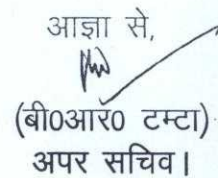 आज्ञा से,
(बी0आर0 टम्टा)
अपर सचिव।